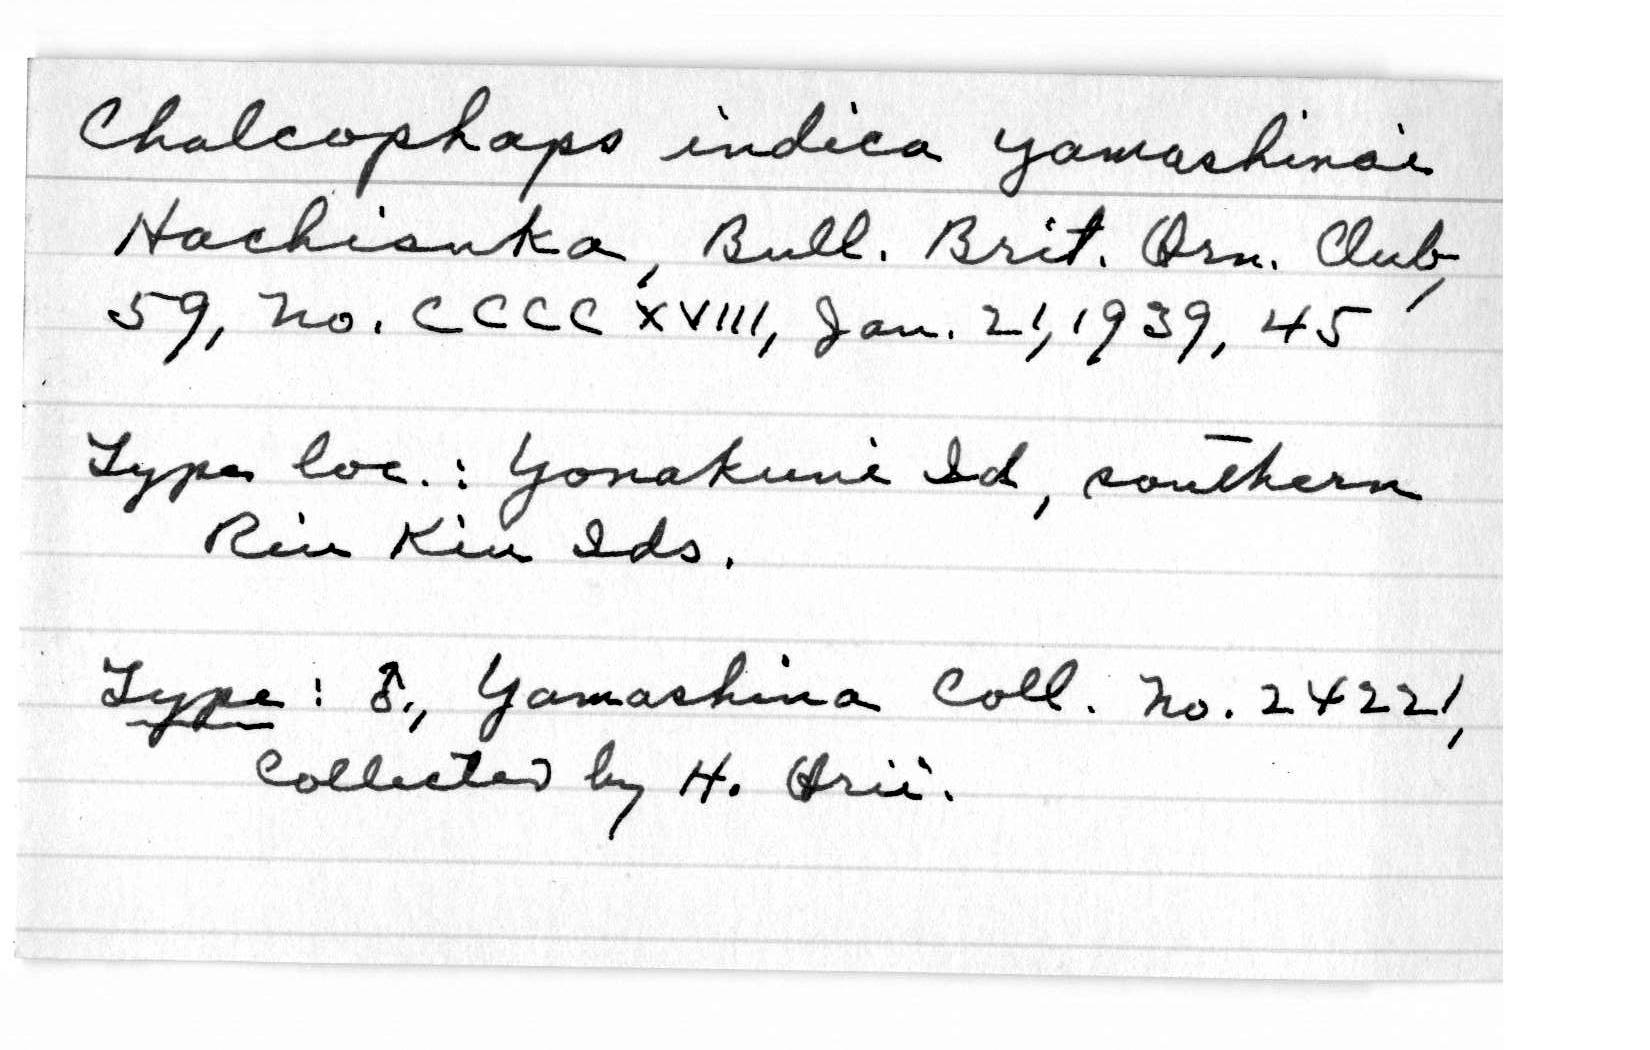 Chalcophaps indica yamashinai
Hachisuka, Bull. Brit. Orn. Club,
59, no. CCCCXVIII, Jan. 21, 1939, 45
Type loc.: Yonakuni Id, southern
Riu Kiu Ids.
Type: ♂, Yamashina Coll. no. 24221,
Collected by H. Orii.